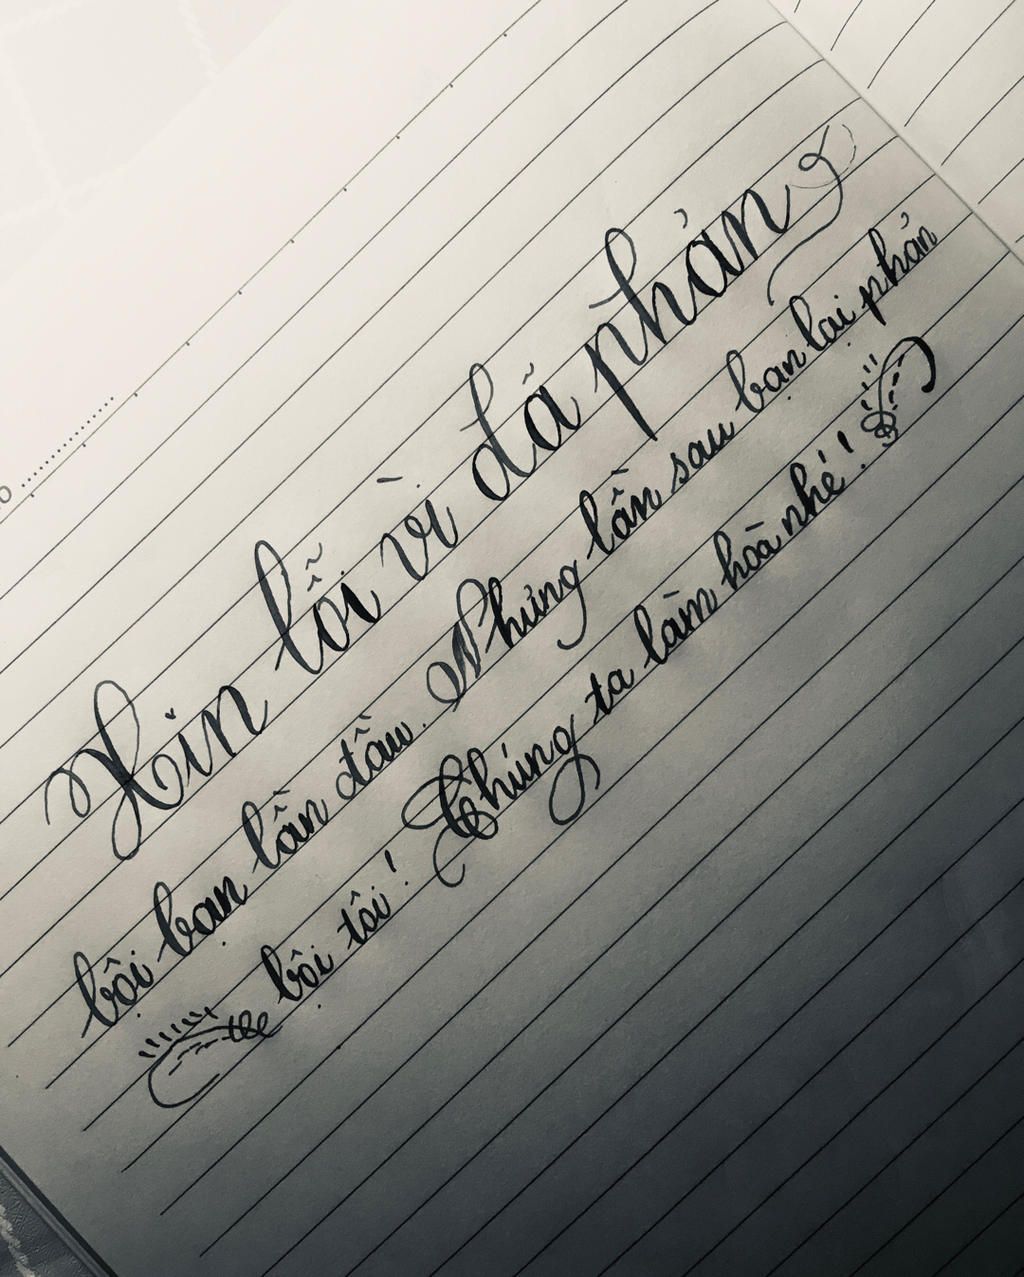 Xin lỗi vì đã phản
bội bạn lần đầu. Nhưng lần sau bạn lại phản
bội tôi! Chúng ta làm hoà nhé!